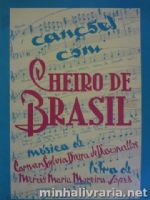 canções
com
CHEIRO DE
BRASIL
música de
Carmen Sylvia Vieira de Vasconcellos
letra de
Maria Moreira
minhalivraria.net